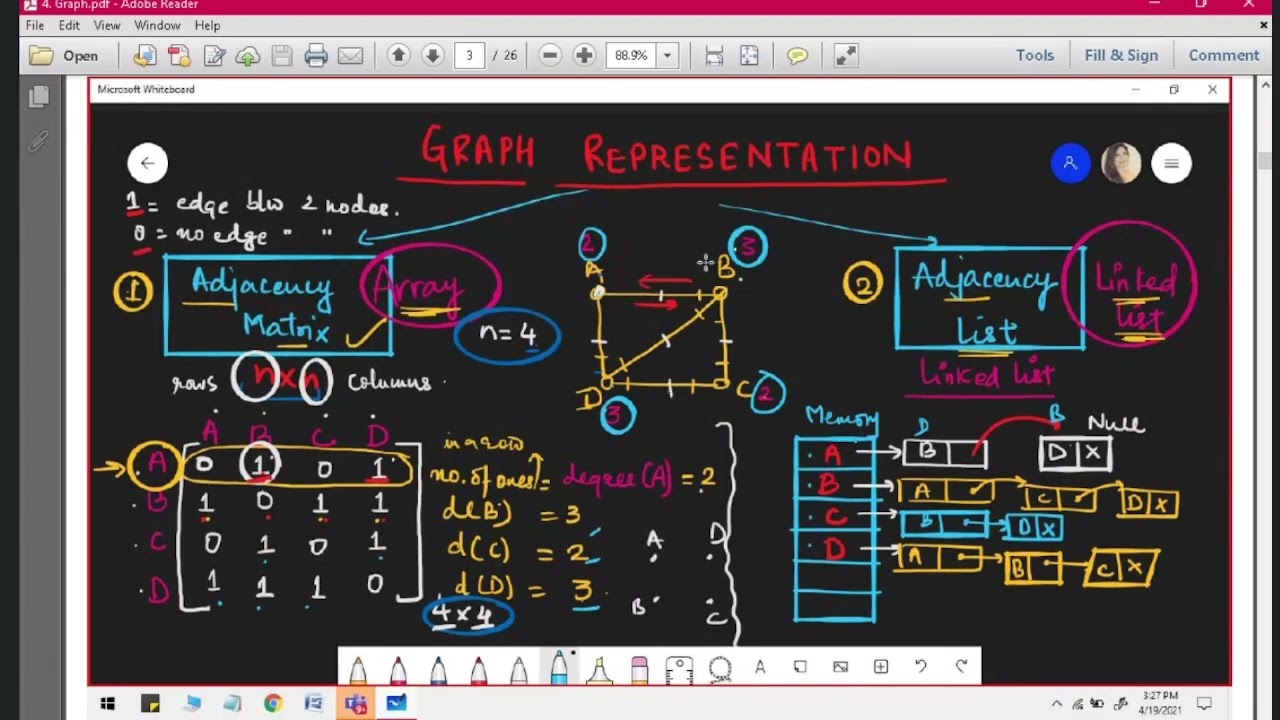 4. Graph.pdf - Adobe Reader
File Edit View Window Help
Open 3 / 26 88.9% Tools Fill & Sign Comment
Microsoft Whiteboard
GRAPH REPRESENTATION
1 = edge blw 2 nodes.
0 = no edge " "
1 Adjacency Matrix Array
n = 4
rows n x n columns
2 A
3 B
D 3
C 2
2 Adjacency List Linked list
Linked list
A B C D
A 0 1 0 1
B 1 0 1 1
C 0 1 0 1
D 1 1 1 0
in a row
no. of ones = degree(A) = 2
d(B) = 3
d(C) = 2
d(D) = 3
4 x 4
A D
B C
Memory D B Null
A B D X
B A C D X
C B D X
D A B C X
A
3:27 PM
4/19/2021